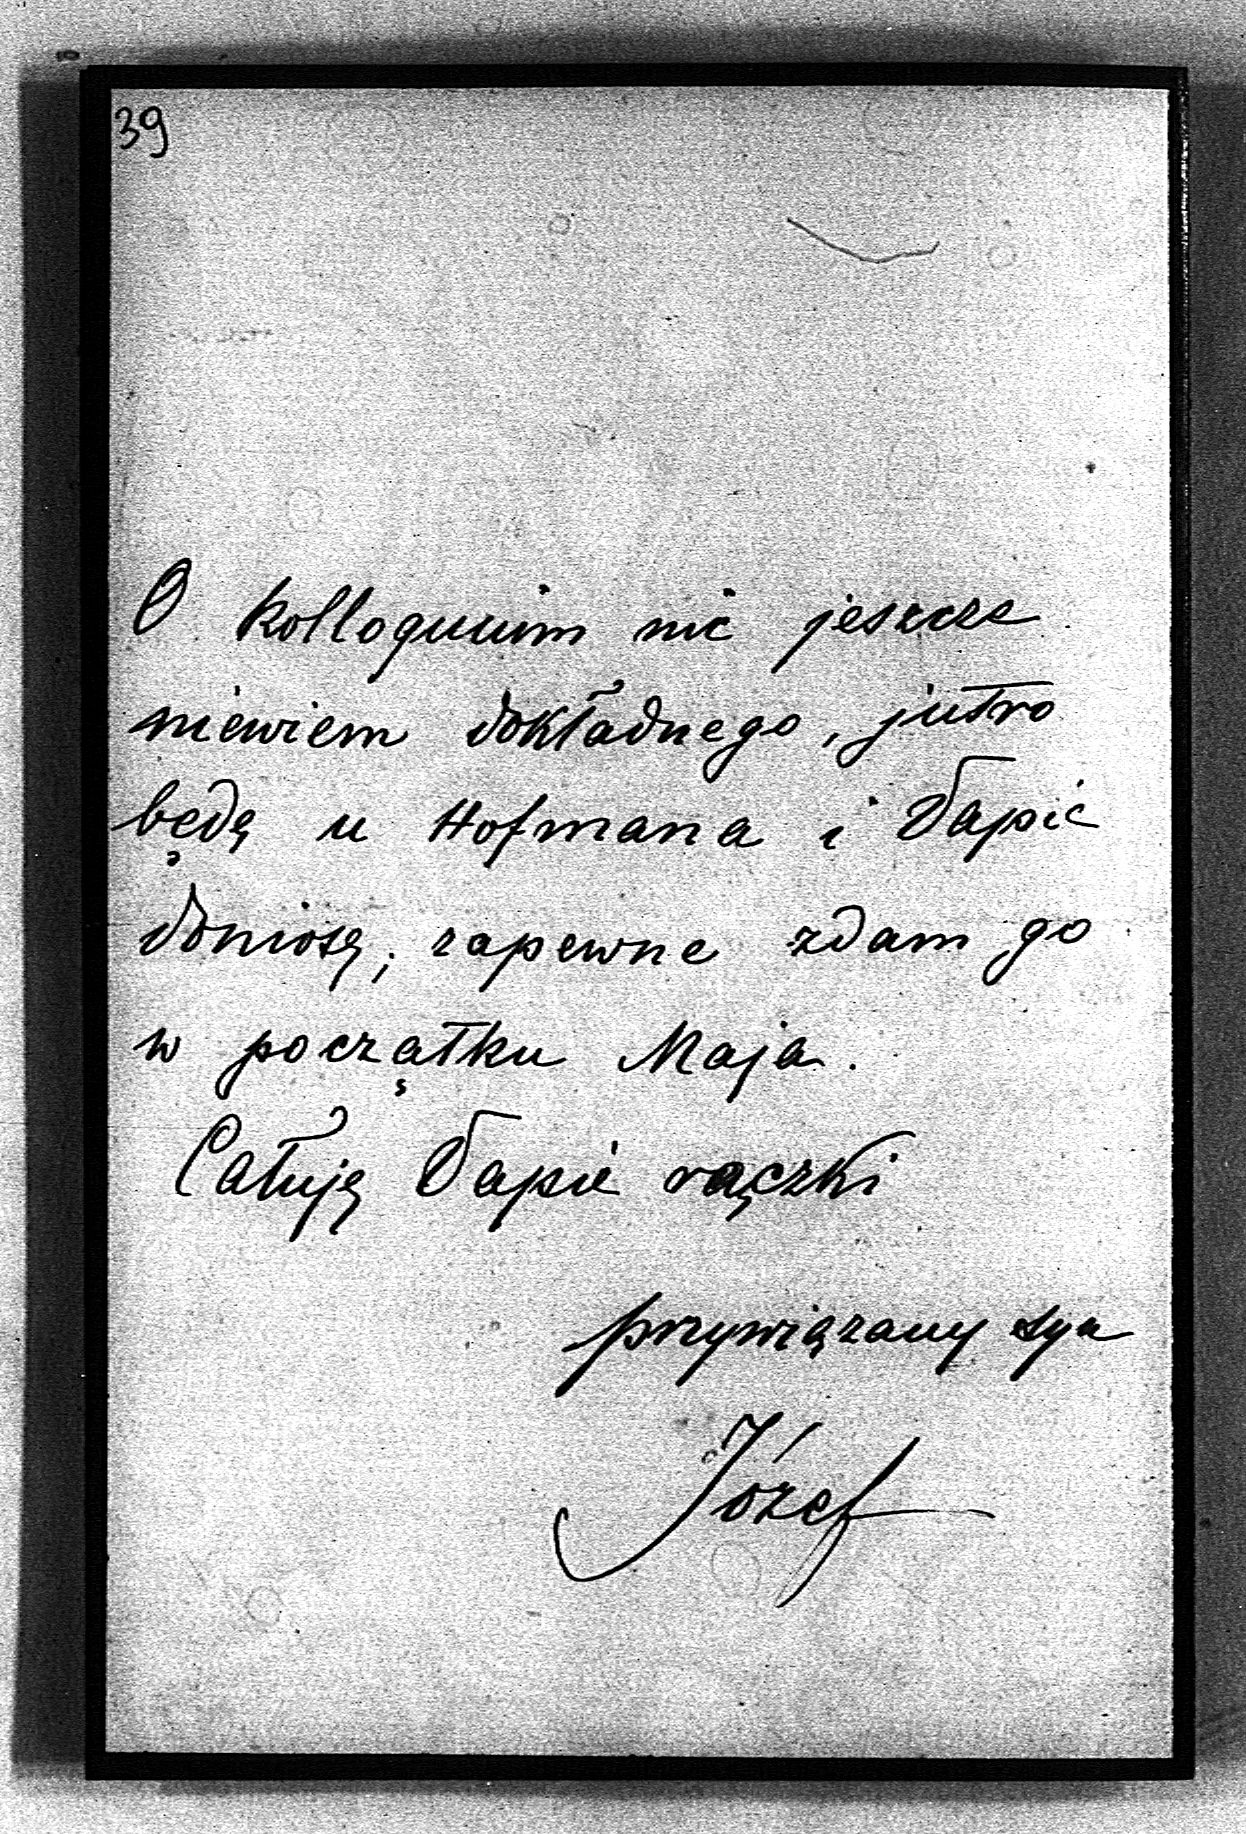 39
O kolloquium nic jeszcze
niewiem dokładnego, jutro
będę u Hofmana i Papie
doniosę, zapewne zdam go
w początku Maja.
Całuję Papie rączki
przywiązany syn
Józef